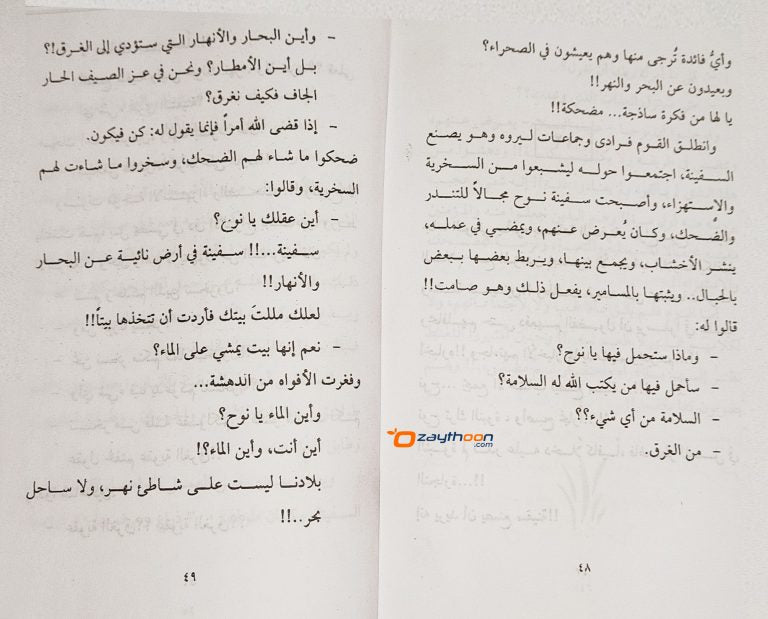 وأيُّ فائدة تُرجى منها وهم يعيشون في الصحراء؟
وبعيدون عن البحر والنهر!!
يا لها من فكرة ساذجة... مضحكة!!
وانطلق القوم فرادى وجماعات ليروه وهو يصنع
السفينة، اجتمعوا حوله ليشبعوا من السخرية
والاستهزاء، وأصبحت سفينة نوح مجالاً للتندر
والضَّحك، وكان يُعرض عنهم، ويمضي في عمله،
ينشر الأخشاب، ويجمع بينها، ويربط بعضها ببعض
بالحبال.. ويثبتها بالمسامير، يفعل ذلك وهو صامت!!
قالوا له:
- وماذا ستحمل فيها يا نوح؟
- سأحمل فيها من يكتب الله له السلامة؟
- السلامة من أي شيء؟؟
- من الغرق.
ozaythoon.com
٤٨
- وأين البحار والأنهار التي ستؤدي إلى الغرق!؟
بل أين الأمطار؟ ونحن في عز الصيف الحار
الجاف فكيف نغرق؟
- إذا قضى الله أمراً فإنما يقول له: كن فيكون.
ضحكوا ما شاء لهم الضحك، وسخروا ما شاءت لهم
السخرية، وقالوا:
- أين عقلك يا نوح؟
سفينة...!! سفينة في أرض نائية عن البحار
والأنهار!!
لعلك مللتَ بيتك فأردت أن تتخذها بيتاً!!
- نعم إنها بيت يمشي على الماء؟
وفغرت الأفواه من الدهشة...
وأين الماء يا نوح؟
أين أنت، وأين الماء؟!
بلادنا ليست على شاطئ نهر، ولا ساحل
بحر..!!
٤٩